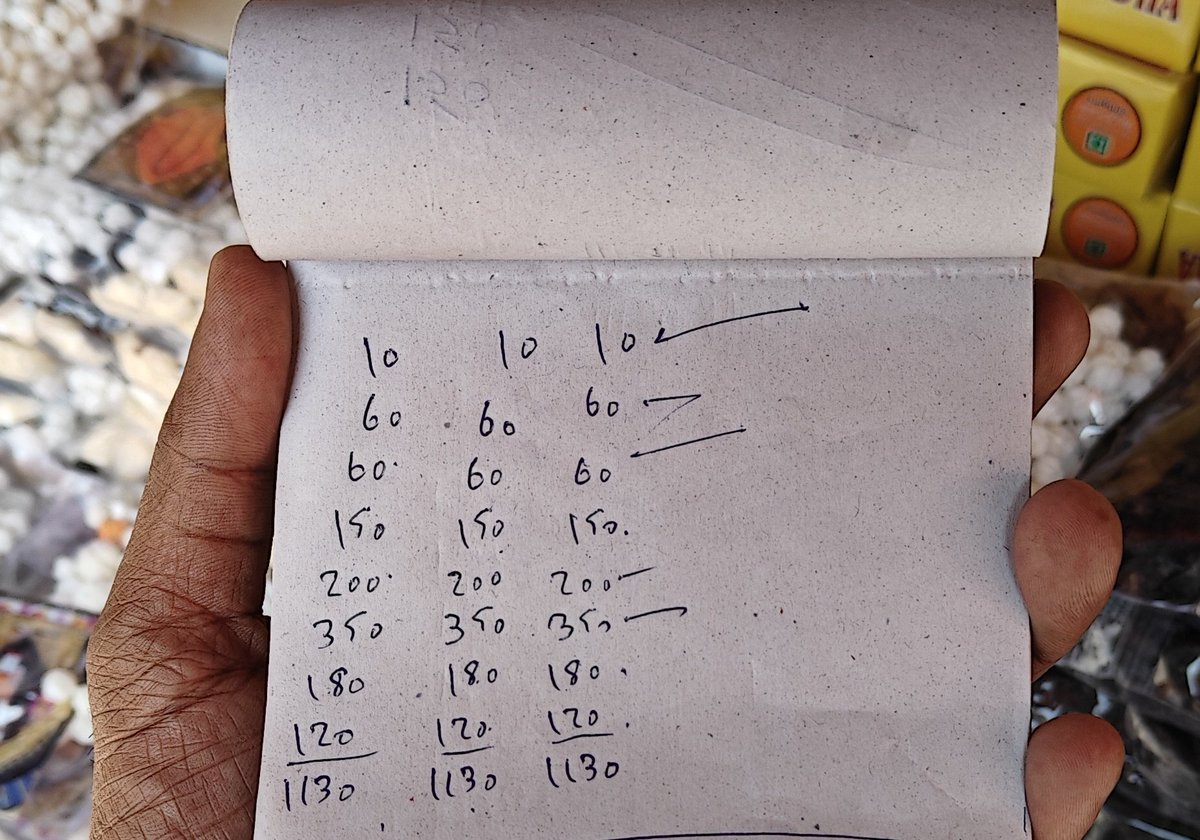 10 10 10
60 60 60
60 60 60
150 150 150.
200 200 200
350 350 350
180 180 180.
120 120 120.
1130 1130 1130